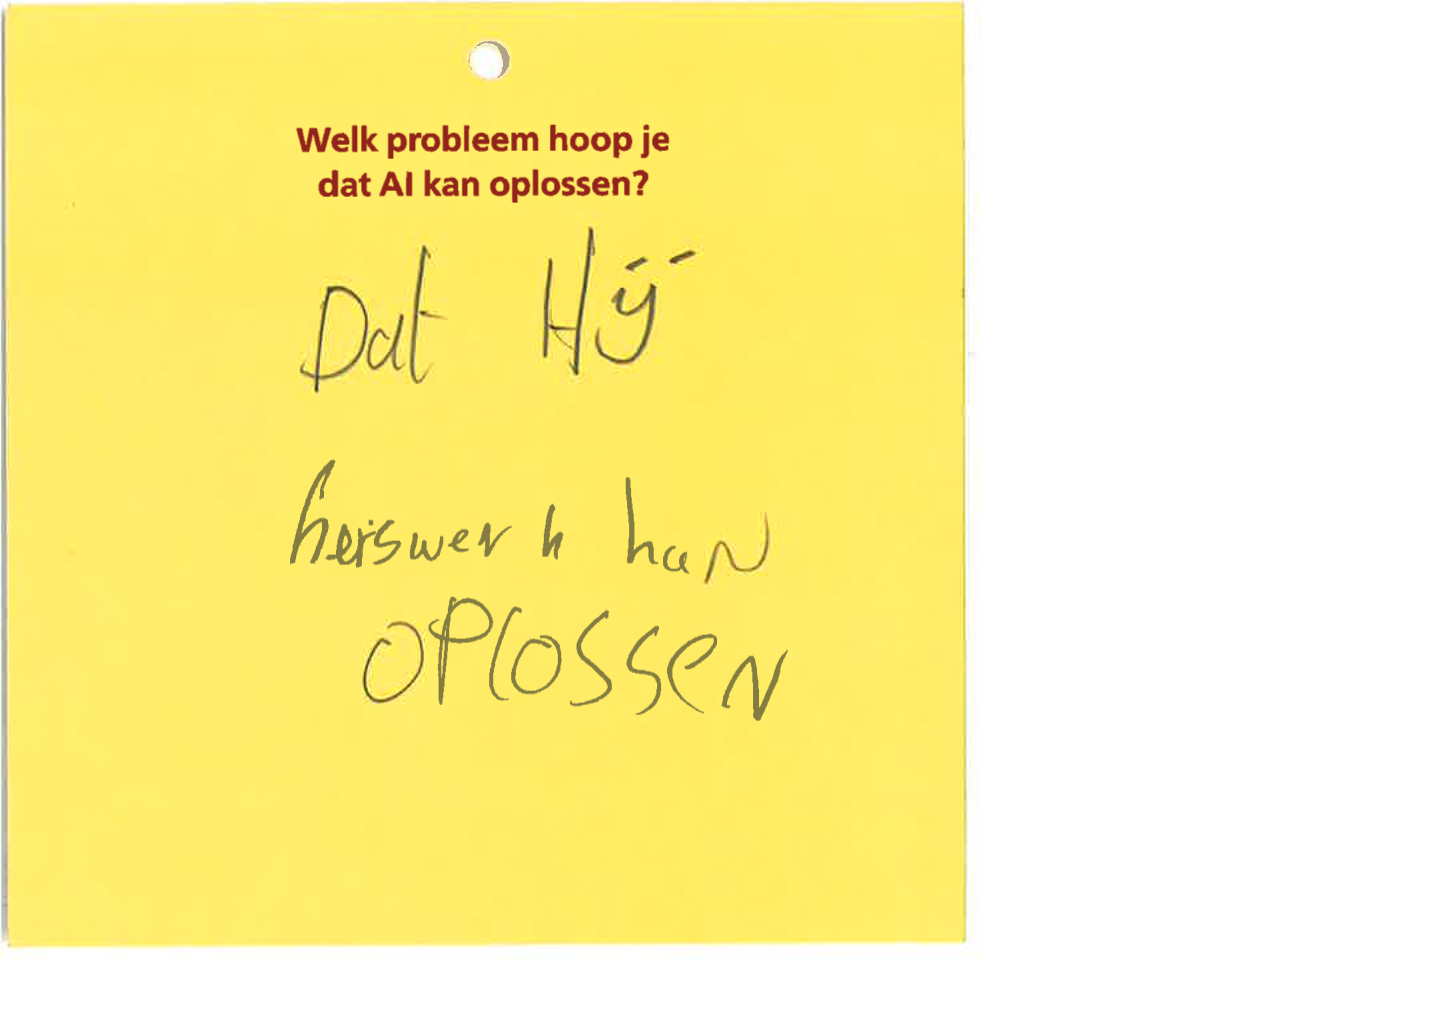 Welk probleem hoop je
dat AI kan oplossen?
Dat Hij
heiswerk kan
oplossen